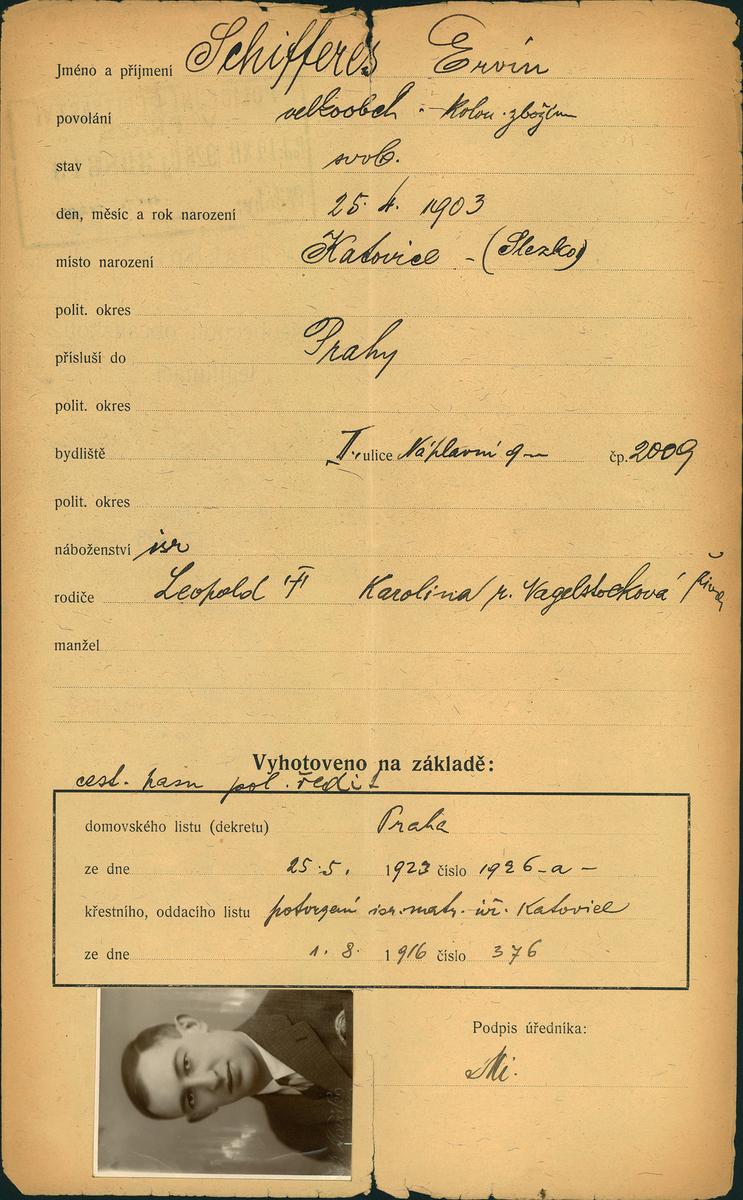 Jméno a příjmení Schifferes Ervín
povolání velkoobch. - kolon. zbožím
stav svob.
den, měsíc a rok narození 25. 4. 1903
místo narození Katovice - (Slezko)
polit. okres
přísluší do Prahy
polit. okres
bydliště II., ulice Náplavní 9 čp. 2009
polit. okres
náboženství isr
rodiče Leopold Karolina r. Nagelstocková
manžel
Vyhotoveno na základě:
cest. pasu pol. ředit
domovského listu (dekretu) Praha
ze dne 25. 5. 1923 číslo 1926-a-
křestního, oddacího listu potvrzení isr. matr. úř. Katovice
ze dne 1. 8. 1916 číslo 376
Podpis úředníka: